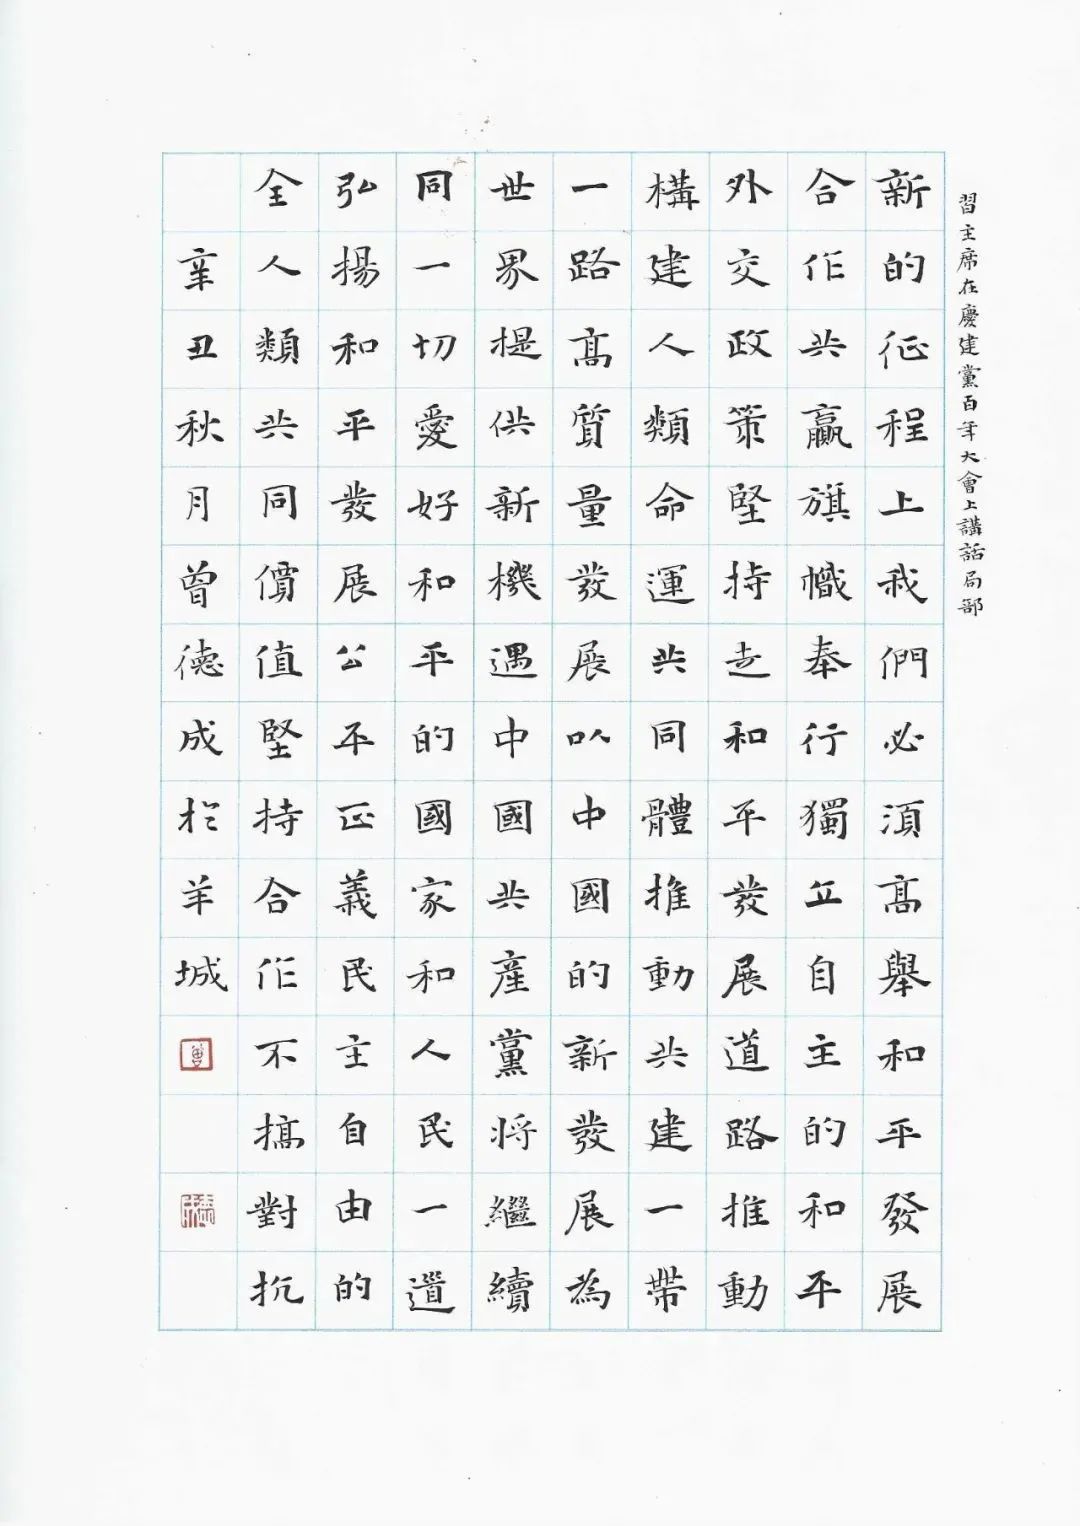 習主席在慶建黨百年大會上講話局部
新的征程上我們必須高舉和平發展
合作共贏旗幟奉行獨立自主的和平
外交政策堅持走和平發展道路推動
構建人類命運共同體推動共建一帶
一路高質量發展以中國的新發展為
世界提供新機遇中國共產黨將繼續
同一切愛好和平的國家和人民一道
弘揚和平發展公平正義民主自由的
全人類共同價值堅持合作不搞對抗
辛丑秋月曾德成於羊城